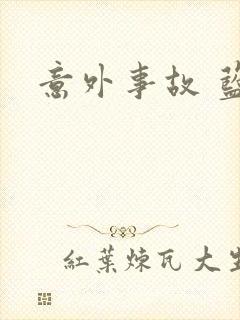 意外事故
紅葉煉瓦大